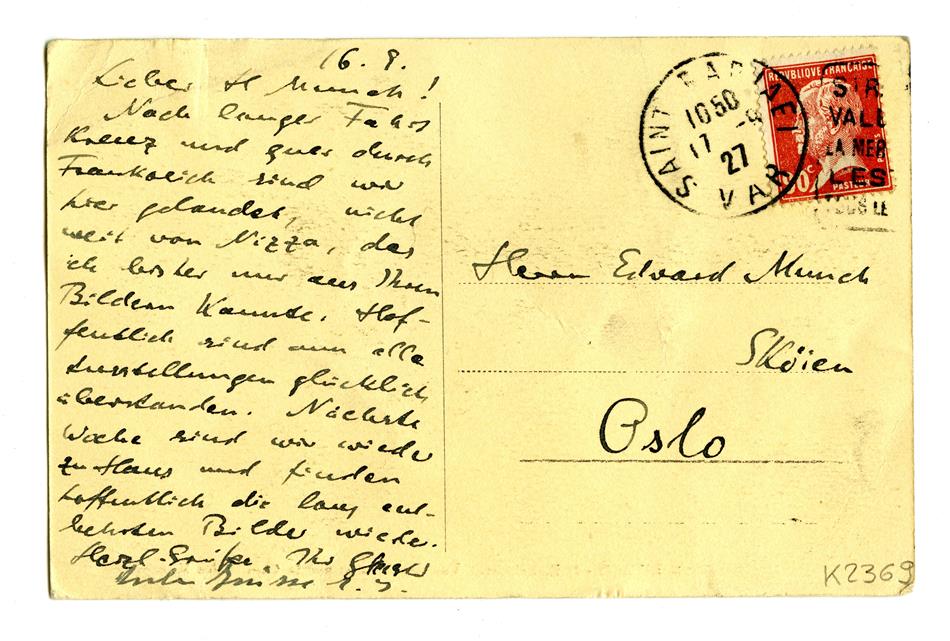 16. 9.
Lieber H Munch!
Nach langer Fahrt
Kreuz und quer durch
Frankreich sind wir
hier gelandet, nicht
weit von Nizza, das
ich bisher nur aus Ihren
Bildern kannte. Hof-
fentlich sind nun alle
Ausstellungen glücklich
überstanden. Nächste
Woche sind wir wieder
zu Haus und finden
hoffentlich die lang ent-
behrten Bilder wieder.
Herzl. Grüße Ihr
SAINT RAPHAEL
1050
17 -9
27
VAR
REPUBLIQUE FRANÇAISE
POSTES
VALE
LA MER
LES
Herrn Edvard Munch
Sköien
Oslo
K2369